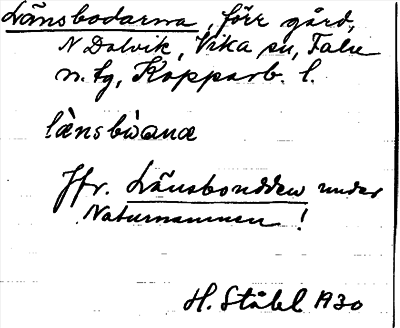 Länsbodarna, förr gård,
N Dalvik, Vika sn, Falu
n. tg, Kopparb. l.
lä̀nsbòana
Jfr. Länsbondden under
Naturnamnen!
H. Ståhl 1930